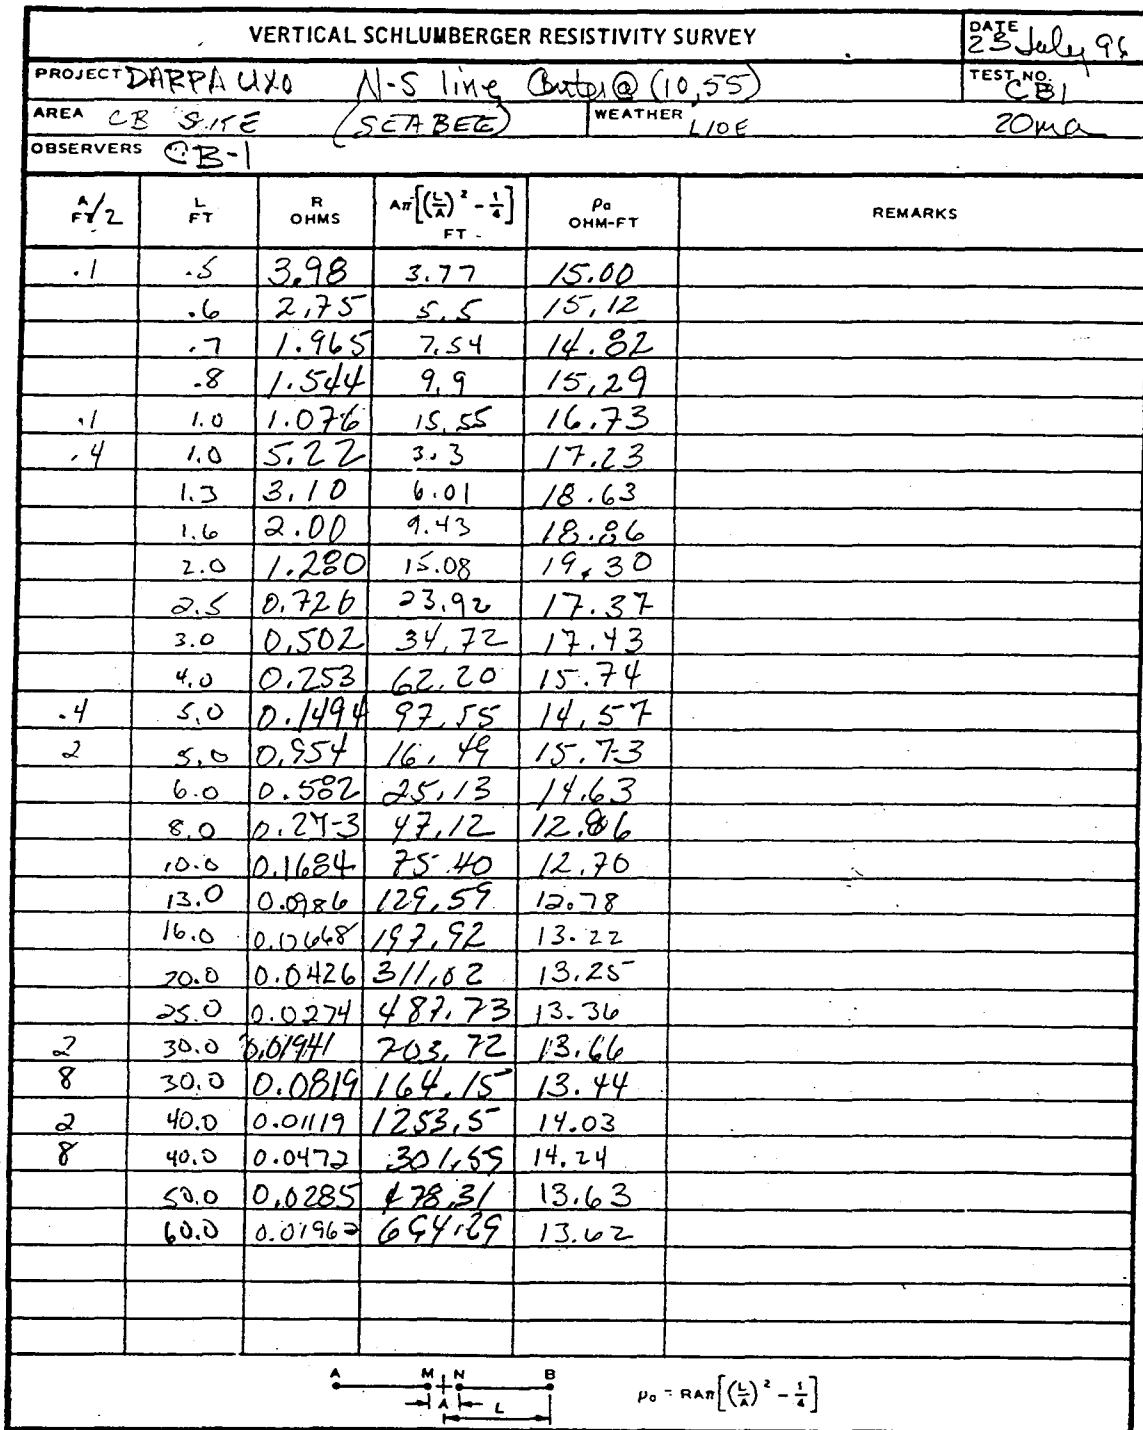 VERTICAL SCHLUMBERGER RESISTIVITY SURVEY DATE 23 July 96
PROJECT DARPA UXO N-S line Center @ (10,55) TEST NO. CB1
AREA CB SITE (SEABEE) WEATHER 20ma
OBSERVERS CB-1
A FT/2 L FT R OHMS Aπ[(L/A)² - 1/4] FT ρa OHM-FT REMARKS
.1 .5 3.98 3.77 15.00
.6 2.75 5.5 15.12
.7 1.965 7.54 14.82
.8 1.544 9.9 15.29
.1 1.0 1.076 15.55 16.73
.4 1.0 5.22 3.3 17.23
1.3 3.10 6.01 18.63
1.6 2.00 9.43 18.86
2.0 1.280 15.08 19.30
2.5 0.726 23.92 17.37
3.0 0.502 34.72 17.43
4.0 0.253 62.20 15.74
.4 5.0 0.1494 97.55 14.57
2 5.0 0.954 16.49 15.73
6.0 0.582 25.13 14.63
8.0 0.273 47.12 12.86
10.0 0.1684 75.40 12.70
13.0 0.0986 129.59 12.78
16.0 0.0668 197.92 13.22
20.0 0.0426 311.02 13.25
25.0 0.0274 487.73 13.36
2 30.0 0.01941 703.72 13.66
8 30.0 0.0819 164.15 13.44
2 40.0 0.01119 1253.5 14.03
8 40.0 0.0472 301.59 14.24
50.0 0.0285 478.31 13.63
60.0 0.01962 694.29 13.62
A M N B
A L
ρa = RAπ[(L/A)² - 1/4]